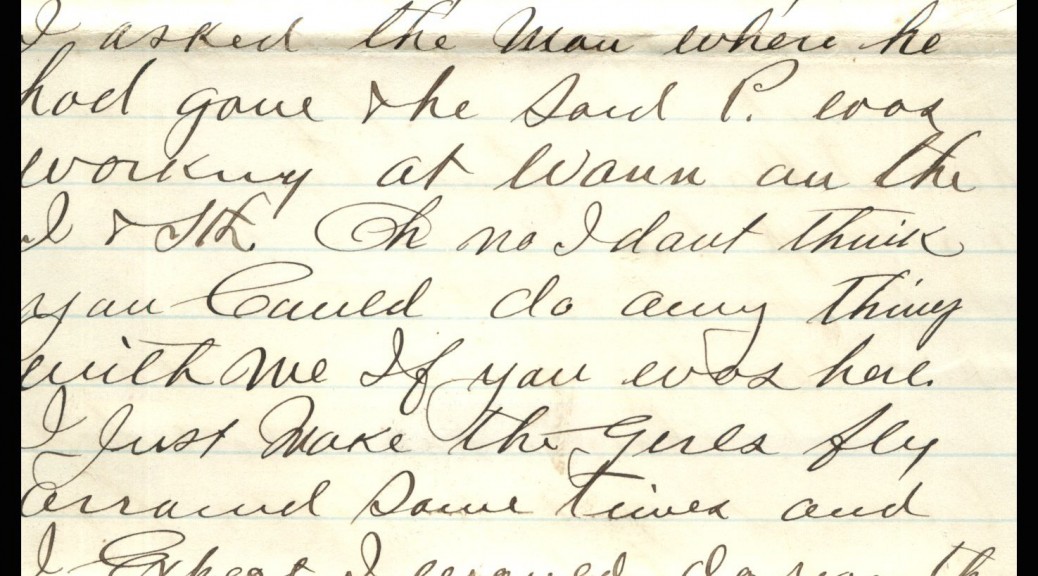 I asked the Man where he
had gone & he Said P. was
working at Wann on the
I & Oh no I dont think
you Could do any thing
with me If you was here.
I Just Make the Gerls fly
arround Some times and
I